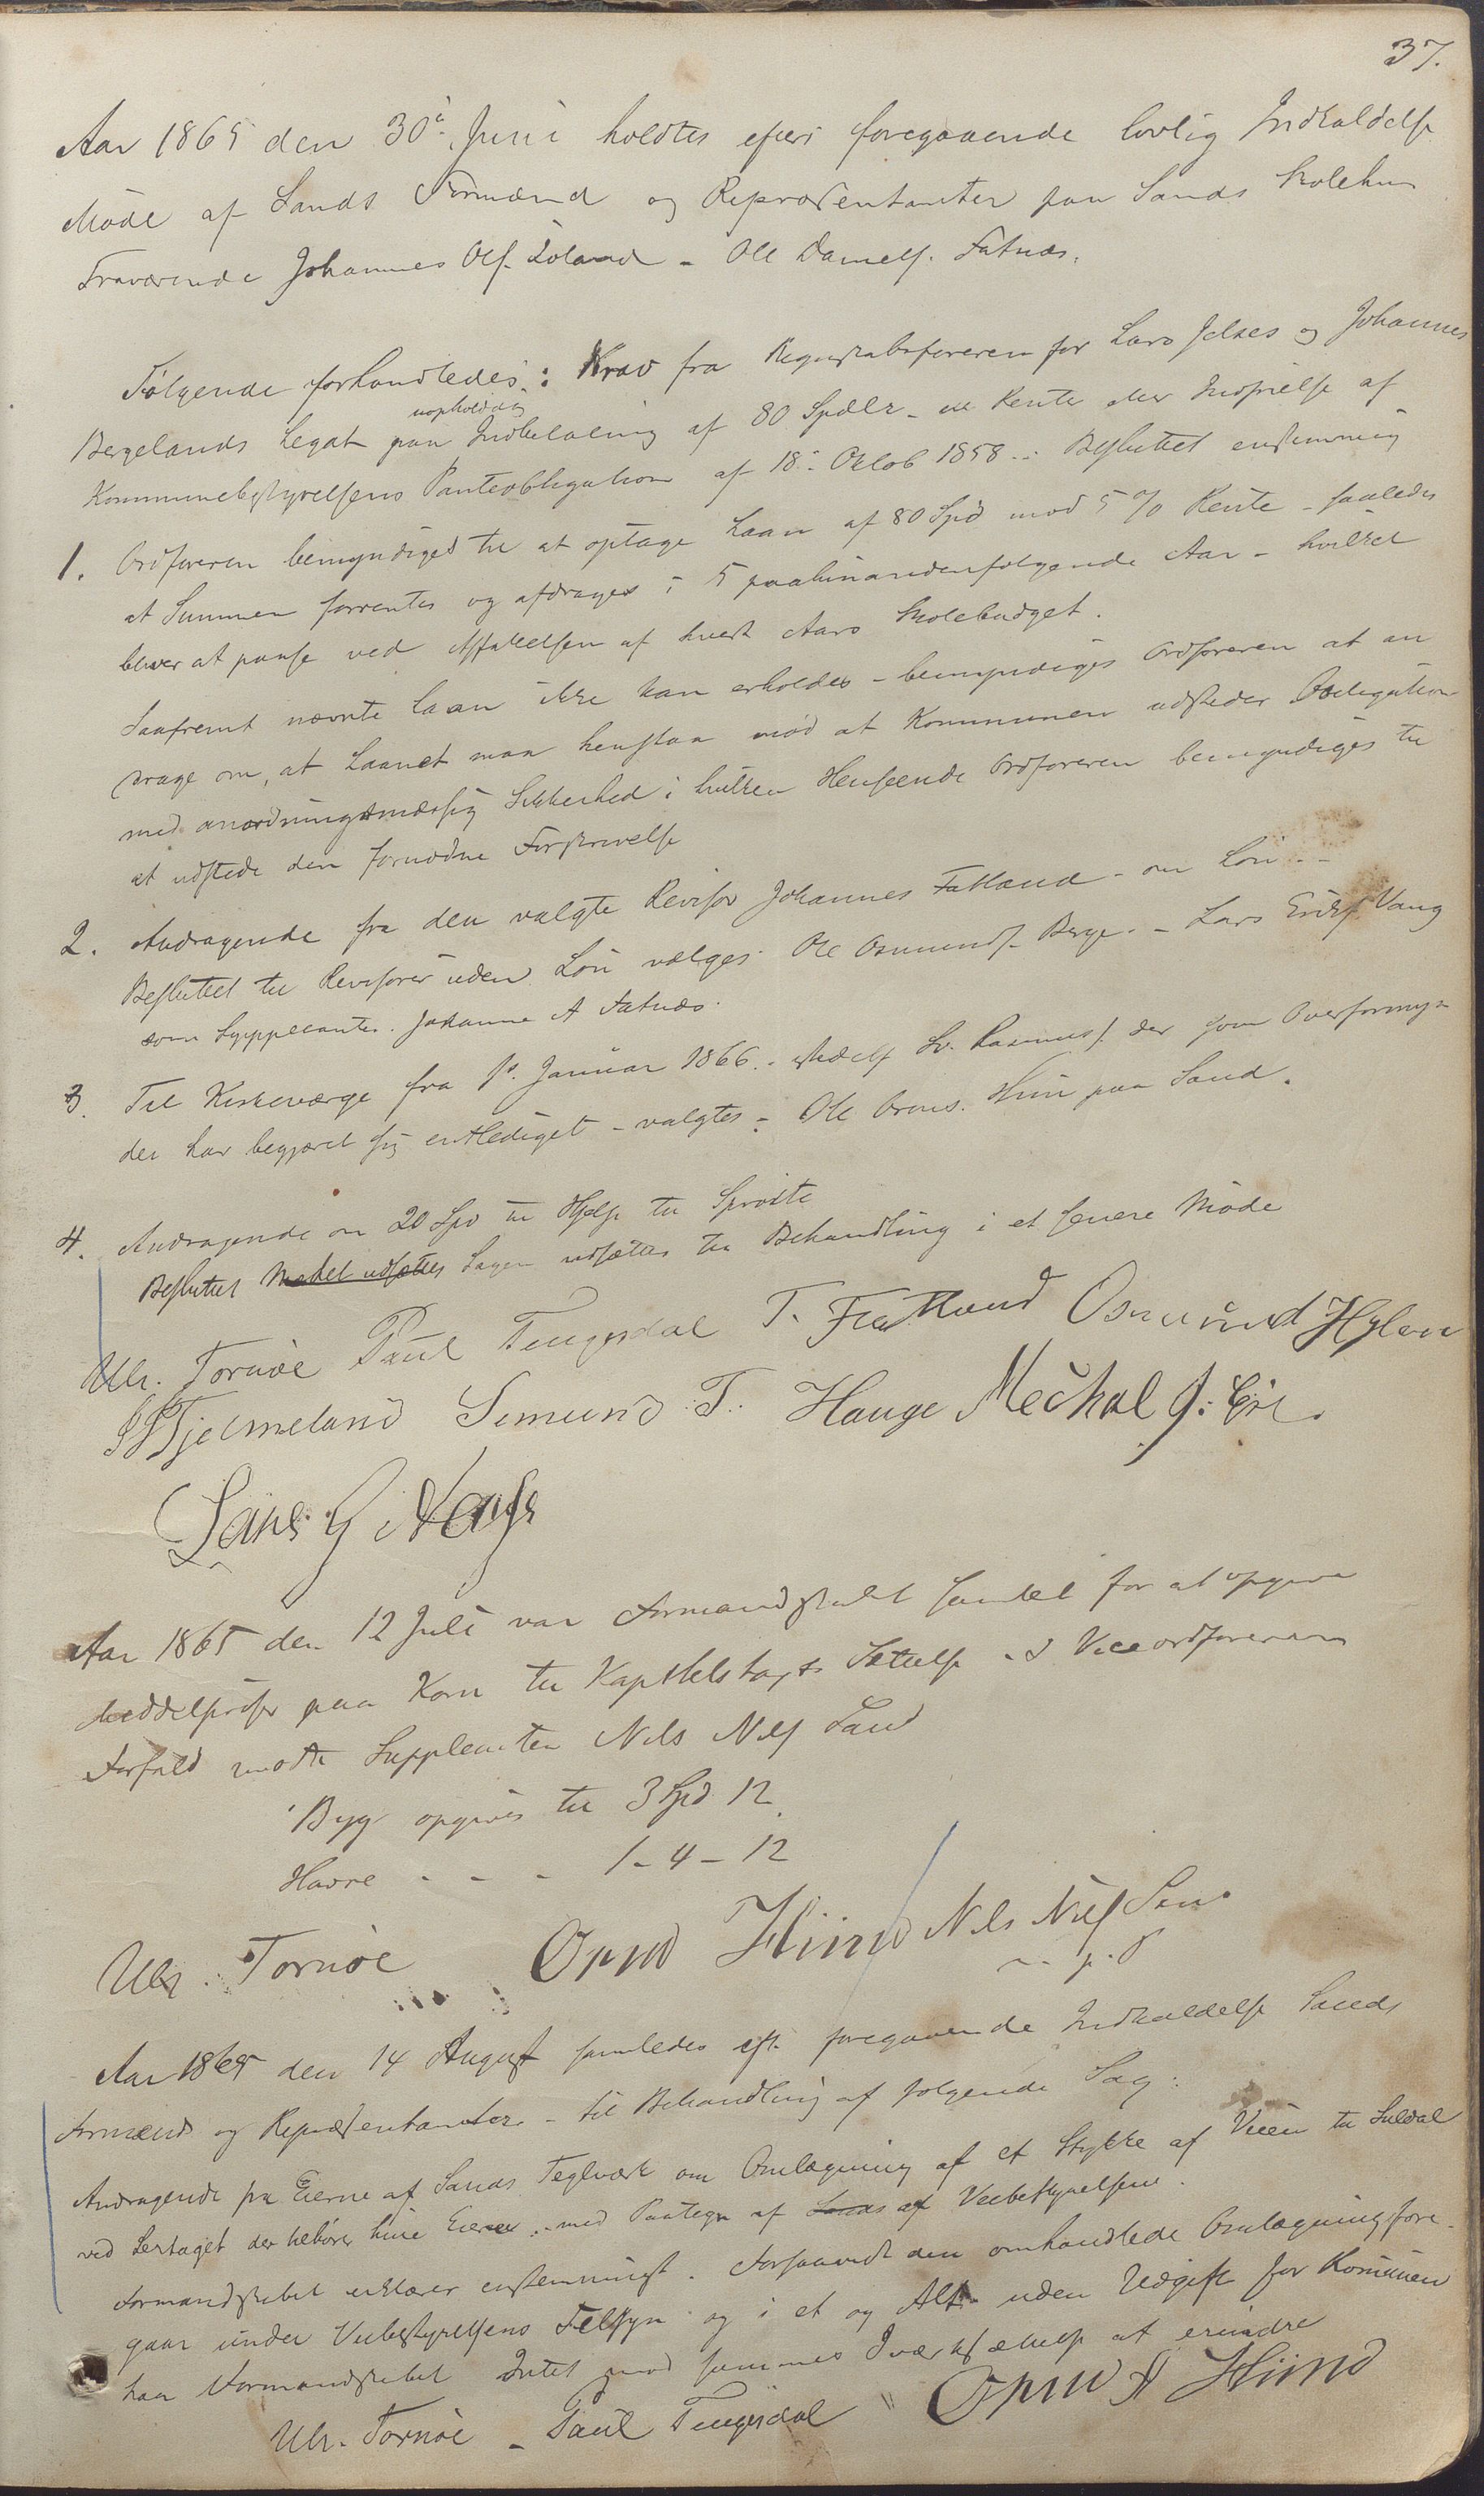 37.
Aar 1865 den 30te Juni holdtes efter foregaaende lovlig Indkaldelse
Møde af Sands Formænd og Repræsentanter paa Sands Skolehus
Fraværende Johannes Ols. - Ole Daniels. Fatnæs.
Følgende forhandledes: Krav fra Regnskabsføreren for Lars Jelses og Johannes
Bergelands Legat paa uopholdelig Indbetaling af 80 Spdlr - Rente eller Indfrielse af
Kommunebestyrelsens Panteobligation af 18de Oktob 1858 - Besluttet enstemmig
1. Ordføreren bemyndiged til at optage Laan af 80 Spd mod 5 % Rente - saaledes
at Summen forrentes og afdrages i 5 paahinandenfølgende Aar - hvilket
bliver at paase ved Affattelsen af hvert Aars Skolebudget.
Saafremt nævnte Laan ikke kan erholdes - bemyndiges Ordføreren at an
drage om, at Laanet maa henstaa mod at Kommunen udsteder Obligation
med anordningsmæssig Sikkerhed i hvilken Henseende Ordføreren bemyndiges til
at udstede den fornødne Forskrivelse
2. Andragende fra den valgte Revisor Johannes Fatland - om Løn -
Besluttet til Revisorer uden Løn vælges Ole Osmunds. Berge. - Lars Eriks. Vang
som Supplecanter. Johannes A Fatnæs.
3. Til Kirkeværge fra 1. Januar 1866 - istedetf Sv. Rasmuss. der som Overformyn
der har begjæret sig entlediget - valgtes - Ole Orms. Hiim paa Sand.
4. Andragende om 20 Spd til Hjelp til Sprøite
Besluttet Mødet udsættes Sagen udsættes til Behandling i et senere Møde
Ulr. Tornøe Paul Tengesdal T. Fatland Osmund Hylen
Hjelmeland Simund T. Hauge Meckal J. Eie
Lars
Aar 1865 den 12 Juli var Formandskabet samlet for at opgive
Middelpriser paa Korn til Kapitelstaxts Sættelse - I Viceordførerens
Forfald mødte Supplanten Nils Nils Sand
Byg opgives til 3 Spd 12
Havre - - - 1 - 4 - 12
Ulr. Tornøe Ormd Hiim Nils Nils Sand
m. p. P
Aar 1865 den 14 August samledes eft. foregaaende Indkaldelse Sands
Formænd og Repræsentanter - til Behandling af følgende Sag:
Andragende fra Eierne af Sands Teglværk om Omlægning af et Stykke af Veien til Suldal
ved Lertaget der tilhører hine Eiere - med Paategn af Sands af Veibestyrelsen.
Formandskabet erklærer enstemmigt. Forsaavidt den omhandlede Omlægning fore
gaar under Veibestyrelsens Tilsyn og i et og Alt uden Udgift for Komunen
har Formandskabet Intet mod sammes Iværksættelse at erindre
Ulr. Tornøe - Paul Tengesdal " Ormd Hiim